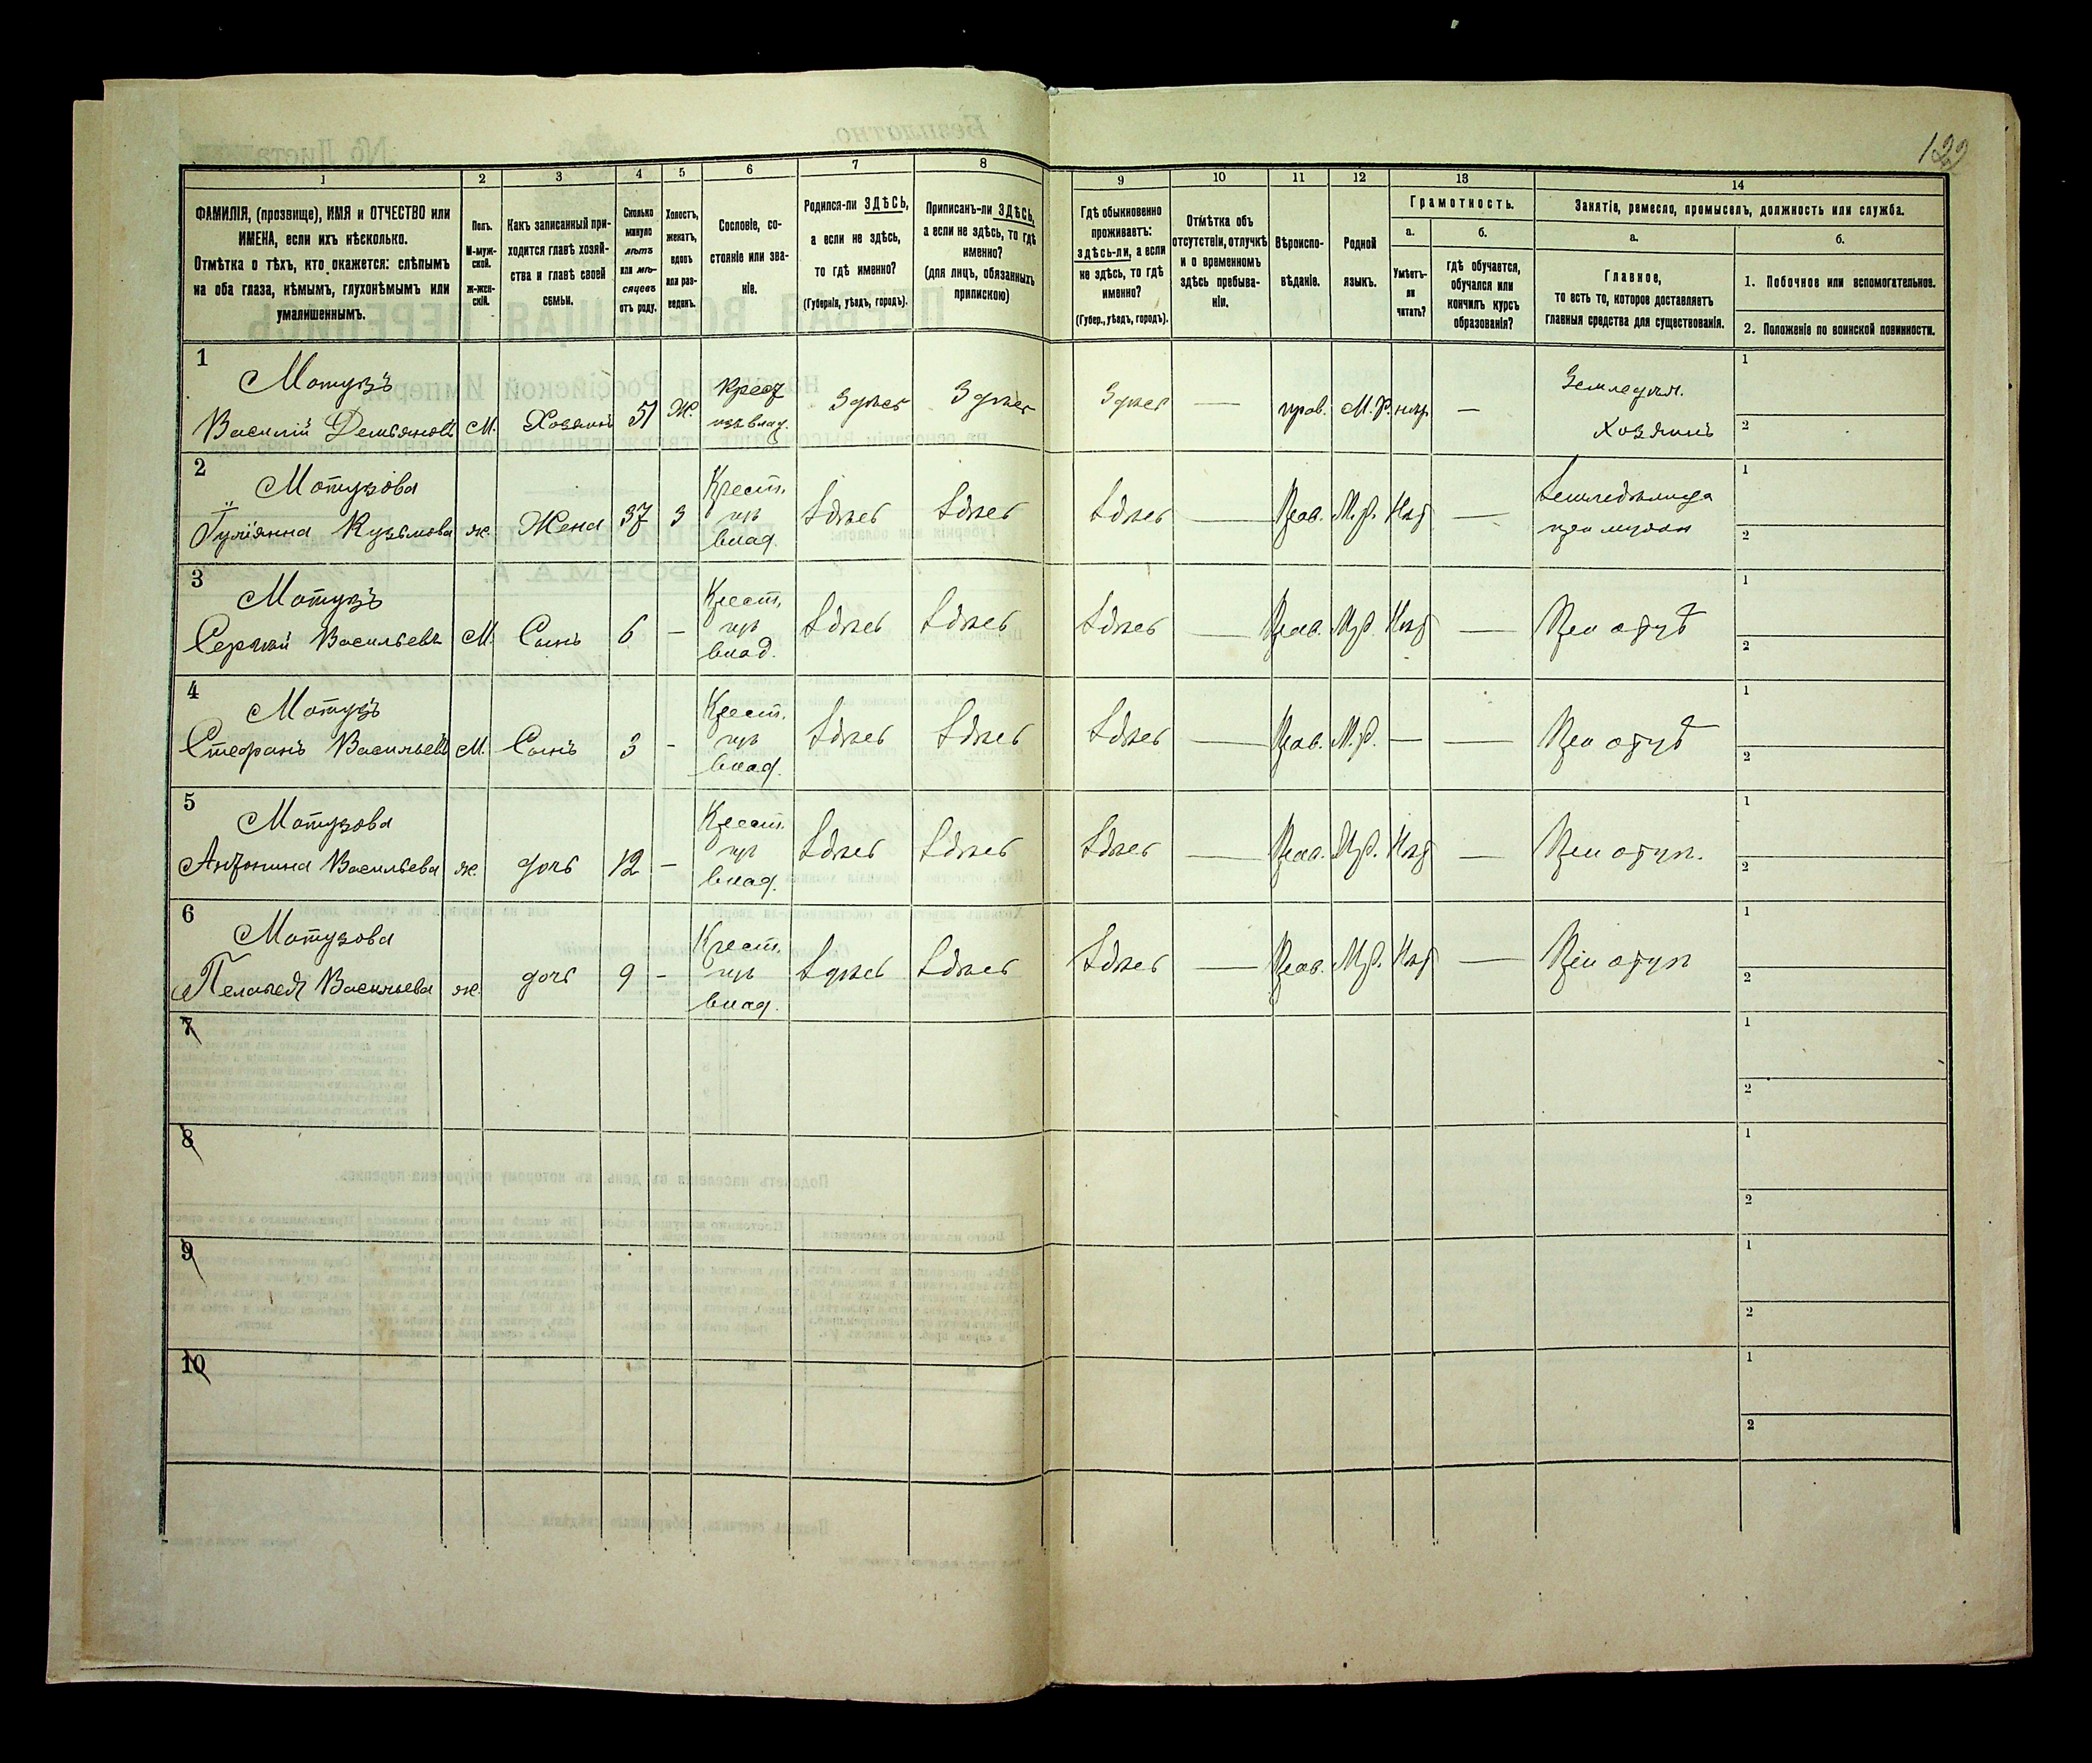 122
1 2 3 4 5 6 7 8 9 10 11 12 13 14
ФАМИЛІЯ, (прозвище), ИМЯ и ОТЧЕСТВО или
ИМЕНА, если ихъ нѣсколько.
Отмѣтка о тѣхъ, кто окажется: слѣпымъ
на оба глаза, нѣмымъ, глухонѣмымъ или
умалишеннымъ.
Полъ.
М-муж-
ской.
Ж-жен-
скій.
Какъ записанный при-
ходится главѣ хозяй-
ства и главѣ своей
семьи.
Сколько
минуло
лѣтъ
или мѣ-
сяцевъ
отъ роду.
Холостъ,
женатъ,
вдовъ
или раз-
веденъ.
Сословіе, со-
стояніе или зва-
ніе.
Родился-ли ЗДѢСЬ,
а если не здѣсь,
то гдѣ именно?
(Губернія, уѣздъ, городъ).
Приписанъ-ли ЗДѢСЬ,
а если не здѣсь, то гдѣ
именно?
(для лицъ, обязанныхъ
припискою)
Гдѣ обыкновенно
проживаетъ:
здѣсь-ли, а если
не здѣсь, то гдѣ
именно?
(Губер., уѣздъ, городъ).
Отмѣтка объ
отсутствіи, отлучкѣ
и о временномъ
здѣсь пребыва-
ніи.
Вѣроиспо-
вѣданіе.
Родной
языкъ.
Грамотность.
а.
Умѣетъ-
ли
читать?
б.
гдѣ обучается,
обучался или
кончилъ курсъ
образованія?
Занятіе, ремесло, промыселъ, должность или служба.
а.
Главное,
то есть то, которое доставляетъ
главныя средства для существованія.
б.
1. Побочное или вспомогательное.
2. Положеніе по воинской повинности.
1
Мотузъ
Василій Демьяновъ М. Хозяинъ 51 Ж. Крест изъ влад. Здѣсь Здѣсь Здѣсь — прав. М.Р. нѣт —
Земледѣл.
Хозяинъ
1
2
2
Мотузова
Кузьмова ж. Жена 37 З Крест. изъ влад. Здѣсь Здѣсь Здѣсь — Прав. М.Р. Нѣт —
1
2
3
Мотузъ
Сергѣй Васильевъ М. Сынъ 6 — Крест. изъ влад. Здѣсь Здѣсь Здѣсь — Прав. М.Р. Нѣт — При отцѣ
1
2
4
Мотузъ
Стефанъ Васильевъ М. Сынъ 3 - Крест. изъ влад. Здѣсь Здѣсь Здѣсь — Прав. М.Р. — — При отцѣ
1
2
5
Мотузова
Антонина Васильева ж. дочь 12 — Крест. изъ влад. Здѣсь Здѣсь Здѣсь — Прав. М.Р. Нѣт —
1
2
6
Мотузова
Пелагея Васильева ж. дочь 9 - Крест. изъ влад. Здѣсь Здѣсь Здѣсь — Прав. М.Р. Нѣт —
1
2
7
1
2
8
1
2
9
1
2
10
1
2